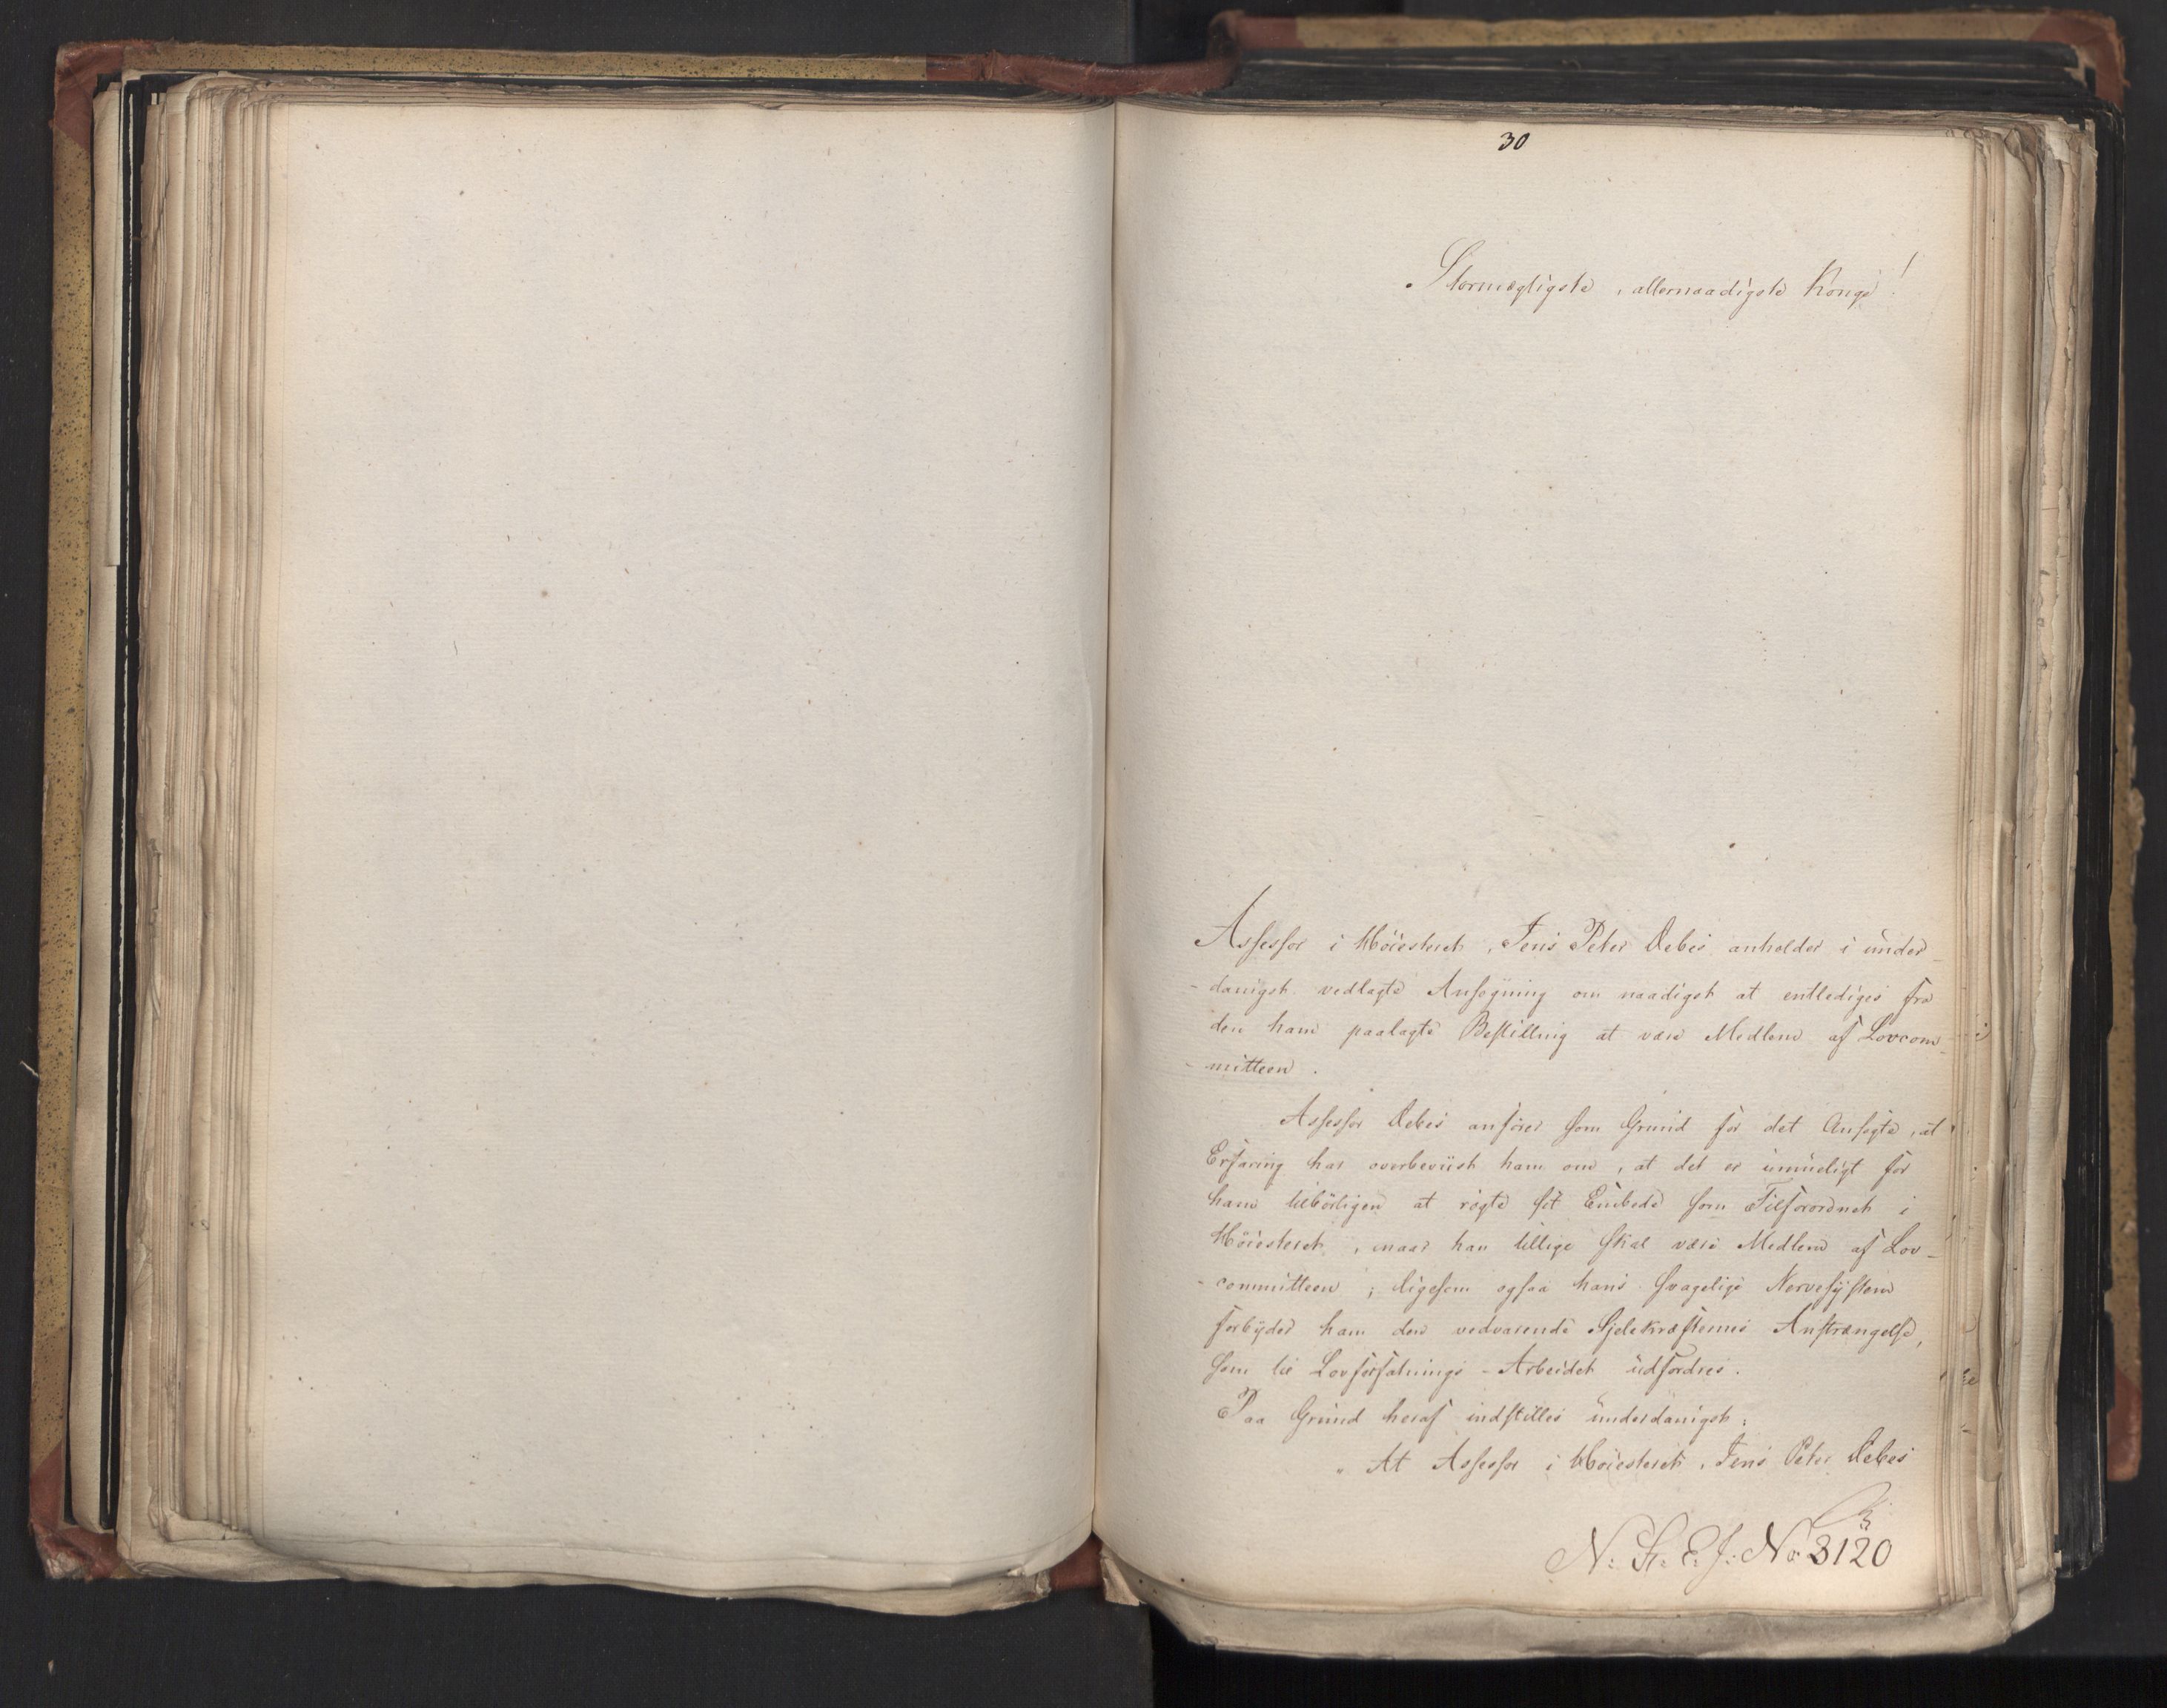 30
Stormægtigste, allernaadigste Konge!
Assessor i Høiesteret, Jens Peter Debes anholder i under-
-danigst vedlagte Ansøgning om naadigst at entlediges fra
den ham paalagte Bestilling at være Medlem af Lovcom-
-mitteen.
Assessor Debes anfører som Grund for det Ansøgte, at
Erfaring har overbeviist ham om, at det er umueligt for
ham tilbørligen at røgte sit Embede som Tilforordnet i
Høiesteret, naar han tillige skal være Medlem af Lov-
-committeen; ligesom ogsaa hans svagelige Nervesystem
forbyder ham den vedvarende Sjelekræfternes Anstrængelse,
som til Lovforfatnings-Arbeidet udfordres.
Paa Grund heraf indstilles underdanigst:
"At Assessor i Høiesteret, Jens Peter Debes
N: St: E: J: No 3120